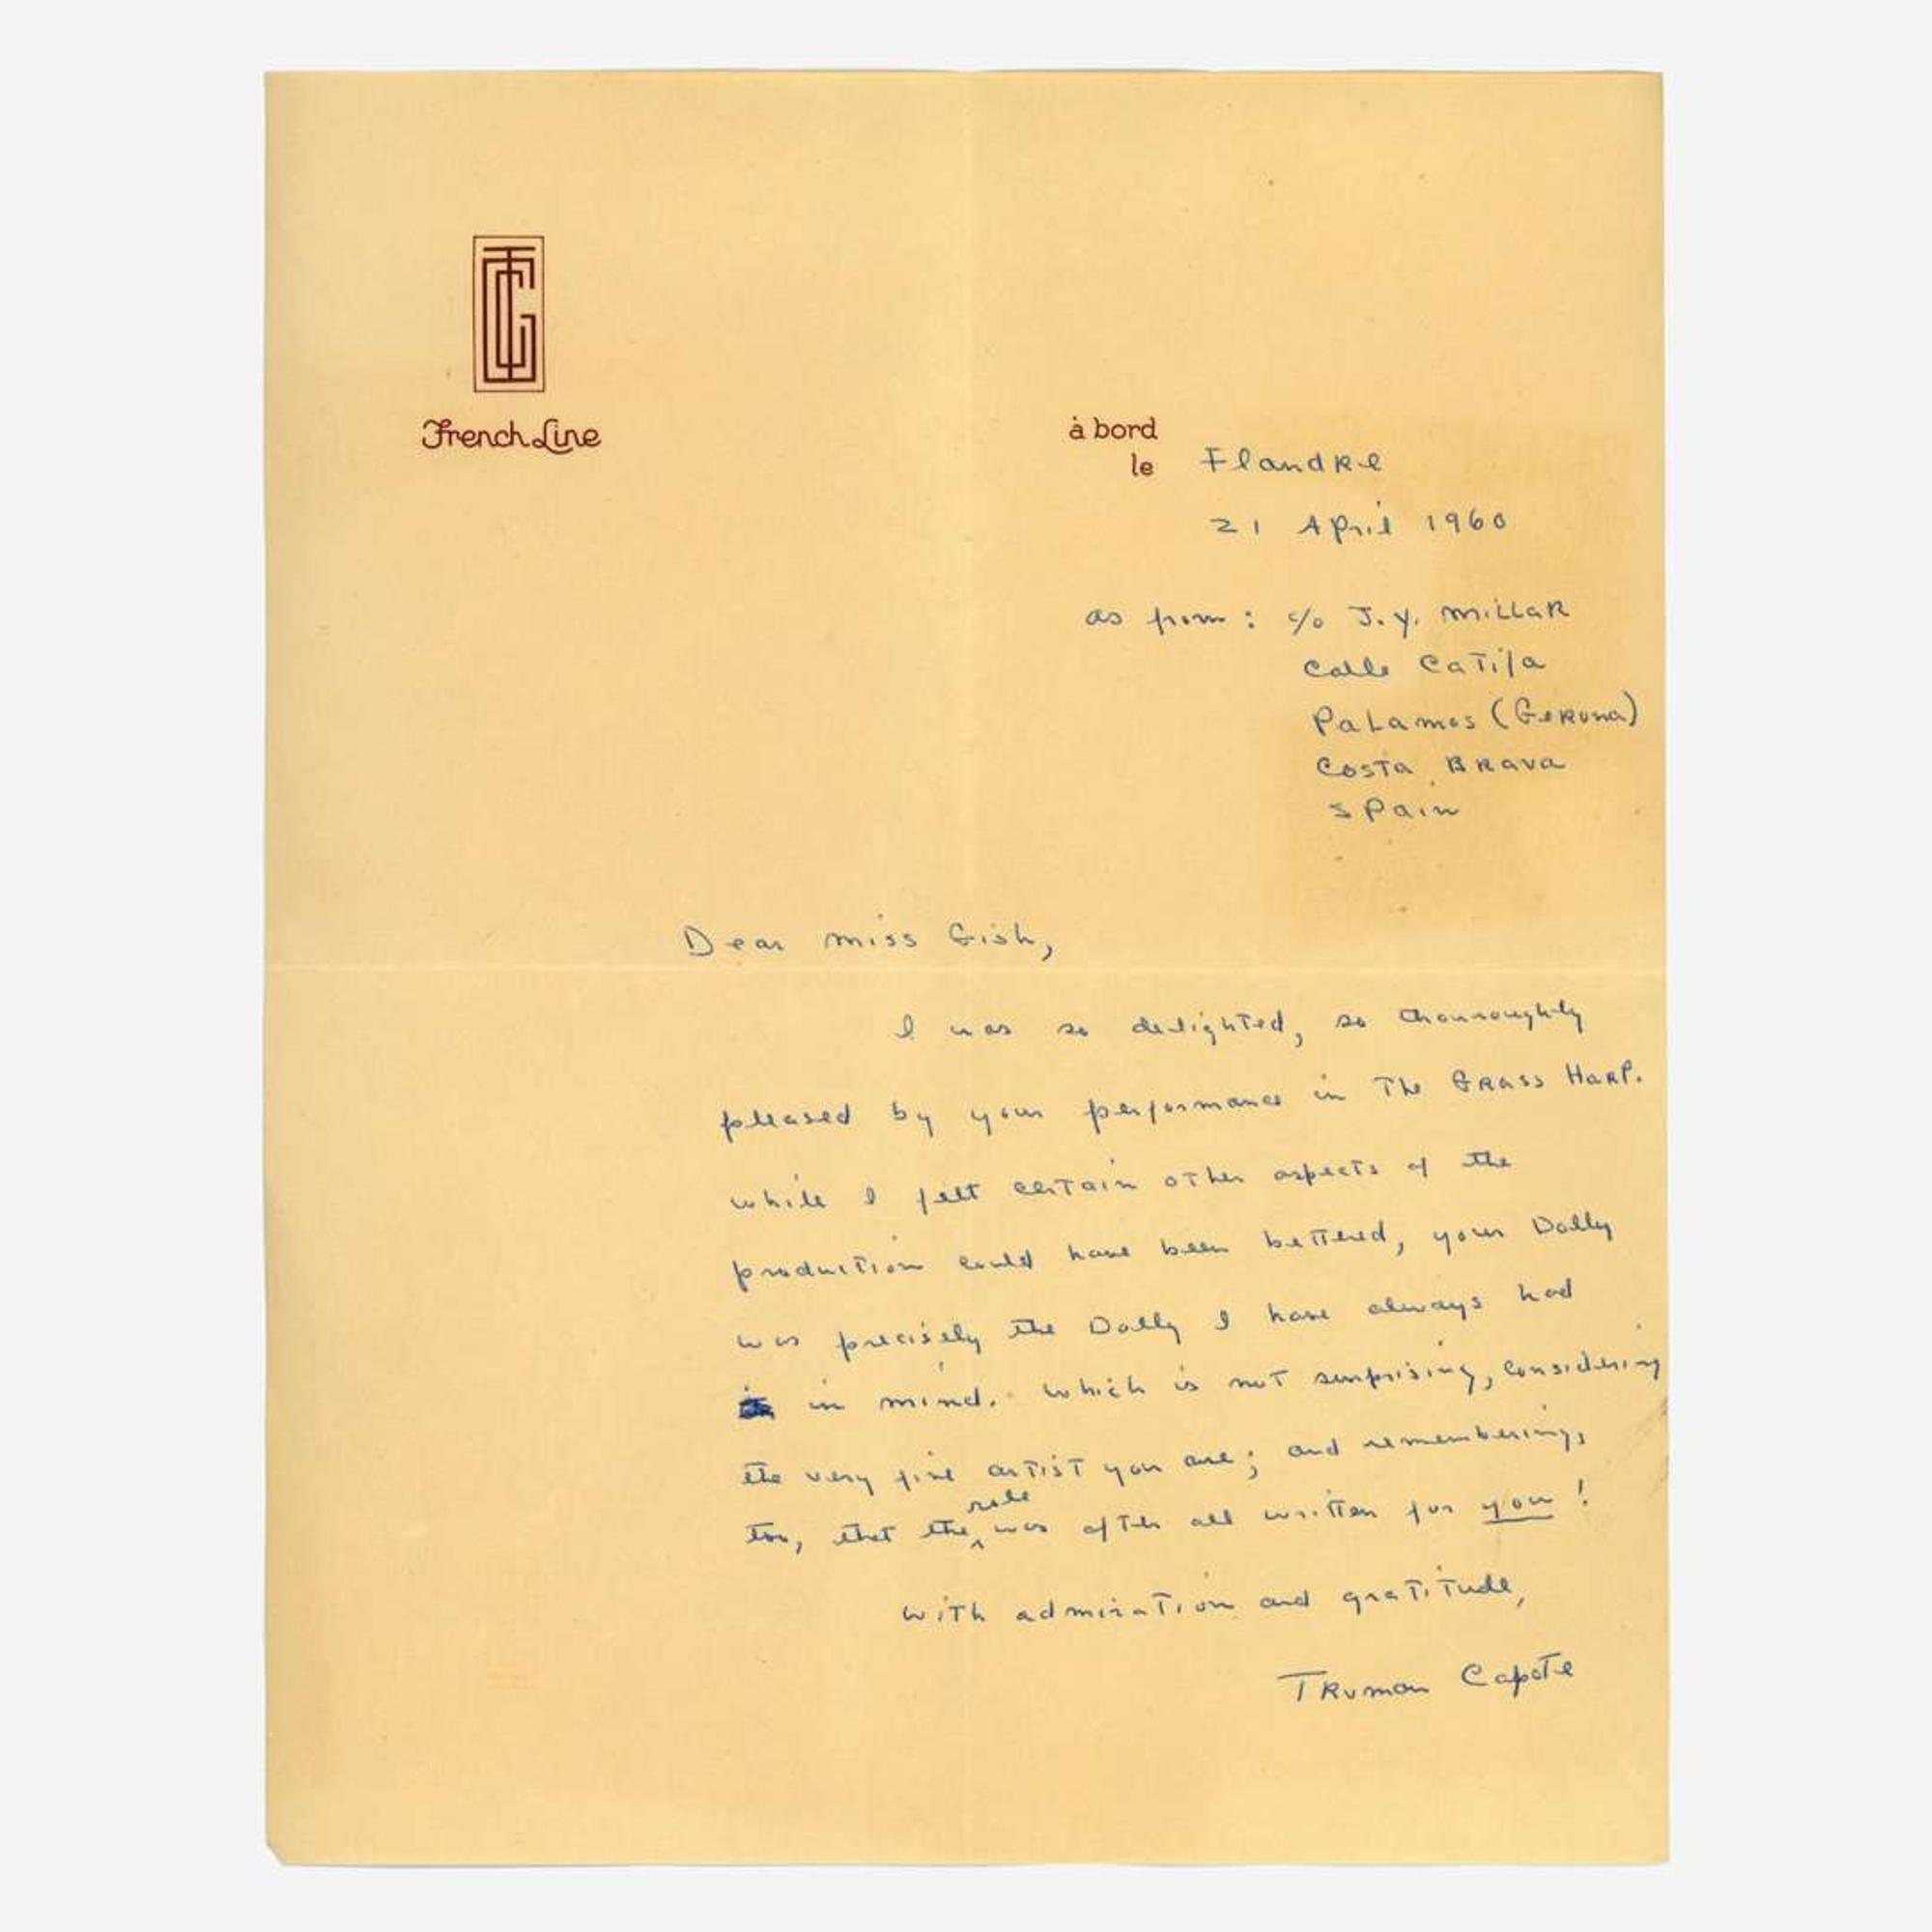 French Line
à bord
le Flandre
21 April 1960
as from: c/o J.Y. Millar
Calle Catifa
Palamos (Gerona)
Costa Brava
Spain
Dear Miss Gish,
I was so delighted, so thouroughly
pleased by your performance in The Grass Harp.
While I felt certain other aspects of the
production could have been bettered, your Dolly
was precisely the Dolly I have always had
in mind. Which is not surprising, considering
the very fine artist you are; and remembering,
too, that the role was after all written for you!
With admiration and gratitude,
Truman Capote